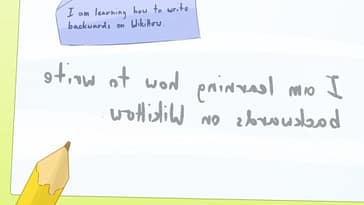 I am learning how to write
backwards on WikiHow.
I am learning how to write
backwards on WikiHow